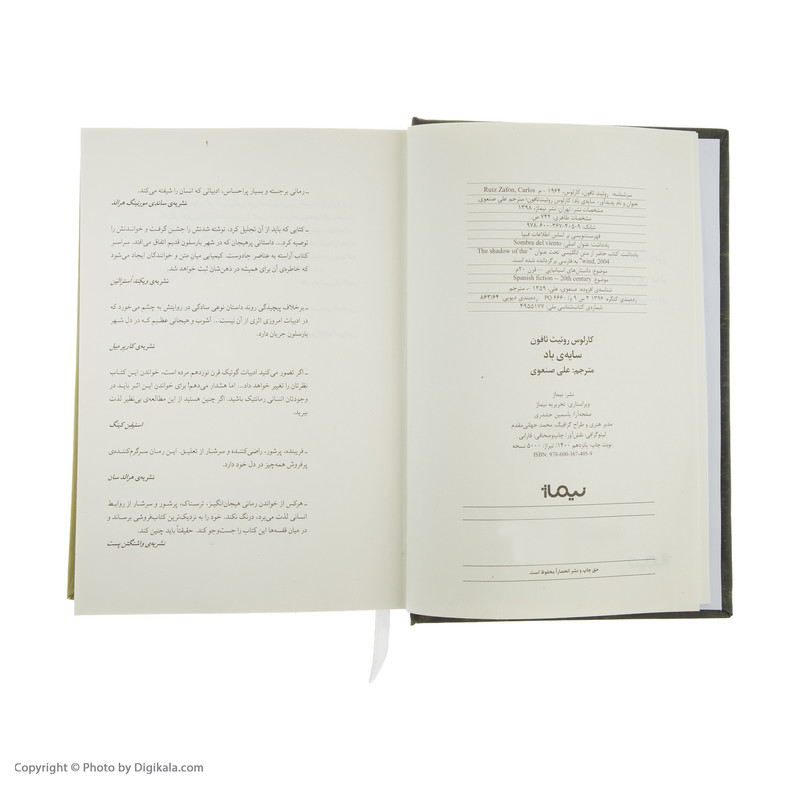 سرشناسه: روئیث ثافون، کارلوس، ۱۹۶۴ - م. Ruiz Zafon, Carlos
عنوان و نام پدیدآور: سایه‌ی باد/ کارلوس روئیث‌ثافون؛ مترجم علی صنعوی.
مشخصات نشر: تهران: نشر نیماژ، ۱۳۹۸
مشخصات ظاهری: ۷۴۴ ص.
شابک: ۹۷۸-۶۰۰-۳۶۷-۴۰۵-۹
فهرست‌نویسی بر اساس اطلاعات فیپا
یادداشت: عنوان اصلی: Sombra del viento
یادداشت: کتاب حاضر از متن انگلیسی تحت عنوان " The shadow of the
wind, 2004" به فارسی برگردانده شده است.
موضوع: داستان‌های اسپانیایی -- قرن ۲۰م
موضوع: Spanish fiction -- 20th century
شناسه‌ی افزوده: صنعوی، علی، ۱۳۵۹ -، مترجم
رده‌بندی کنگره: ۱۳۹۶ ۲ س ۹ و/ PQ ۶۶۶۰ رده‌بندی دیویی: ۸۶۳/۶۴
شماره‌ی کتاب‌شناسی ملی: ۴۹۵۵۱۷۷
کارلوس روئیث ثافون
سایه‌ی باد
مترجم: علی صنعوی
نشر: نیماژ
ویراستاری: تحریریه نیماژ
صفحه‌آرا: یاسمین حشدری
مدیر هنری و طراح گرافیک: محمد جهانی‌مقدم
لیتوگرافی: نقش‌آور؛ چاپ‌وصحافی: فارابی
نوبت چاپ: پانزدهم ۱۴۰۰/ تیراژ: ۵۰۰۰ نسخه
ISBN: 978-600-367-405-9
نیماژ
حق چاپ و نشر انحصاراً محفوظ است.
ـ رمانی برجسته و بسیار پراحساس، ادبیاتی که انسان را شیفته می‌کند.
نشریه‌ی ساندی مورنینگ هرالد
ـ کتابی که باید از آن تجلیل کرد، نوشته شدنش را جشن گرفت و خواندنش را
توصیه کرد... داستانی پرهیجان که در شهر بارسلون قدیم اتفاق می‌افتد. سراسر
کتاب آراسته به عناصر جادوست. کیمیایی میان متن و خوانندگان ایجاد می‌شود
که خاطره‌ی آن برای همیشه در ذهن‌شان ثبت خواهد شد.
نشریه‌ی ویکند استرالین
ـ برخلاف پیچیدگی روند داستان نوعی سادگی در روایتش به چشم می‌خورد که
در ادبیات امروزی اثری از آن نیست... آشوب و هیجانی عظیم که در دل شهر
بارسلون جریان دارد.
نشریه‌ی کاریر میل
ـ اگر تصور می‌کنید ادبیات گوتیک قرن نوزدهم مرده است، خواندن این کتاب
نظرتان را تغییر خواهد داد... اما هشدار می‌دهم! برای خواندن این اثر باید در
وجودتان انسانی رمانتیک باشید. اگر چنین هستید از این مطالعه‌ی بی‌نظیر لذت
ببرید.
استیفن کینگ
ـ فریبنده، پرشور، راضی‌کننده و سرشار از تعلیق. این رمان سرگرم‌کننده‌ی
پرفروش همه‌چیز در دل خود دارد.
نشریه‌ی هرالد سان
ـ هرکس از خواندن رمانی هیجان‌انگیز، ترسناک، پرشور و سرشار از روابط
انسانی لذت می‌برد، درنگ نکند. خود را به نزدیک‌ترین کتاب‌فروشی برساند و
در میان قفسه‌ها این کتاب را جست‌وجو کند. حقیقتاً باید چنین کند.
نشریه‌ی واشنگتن پست
Copyright © Photo by Digikala.com